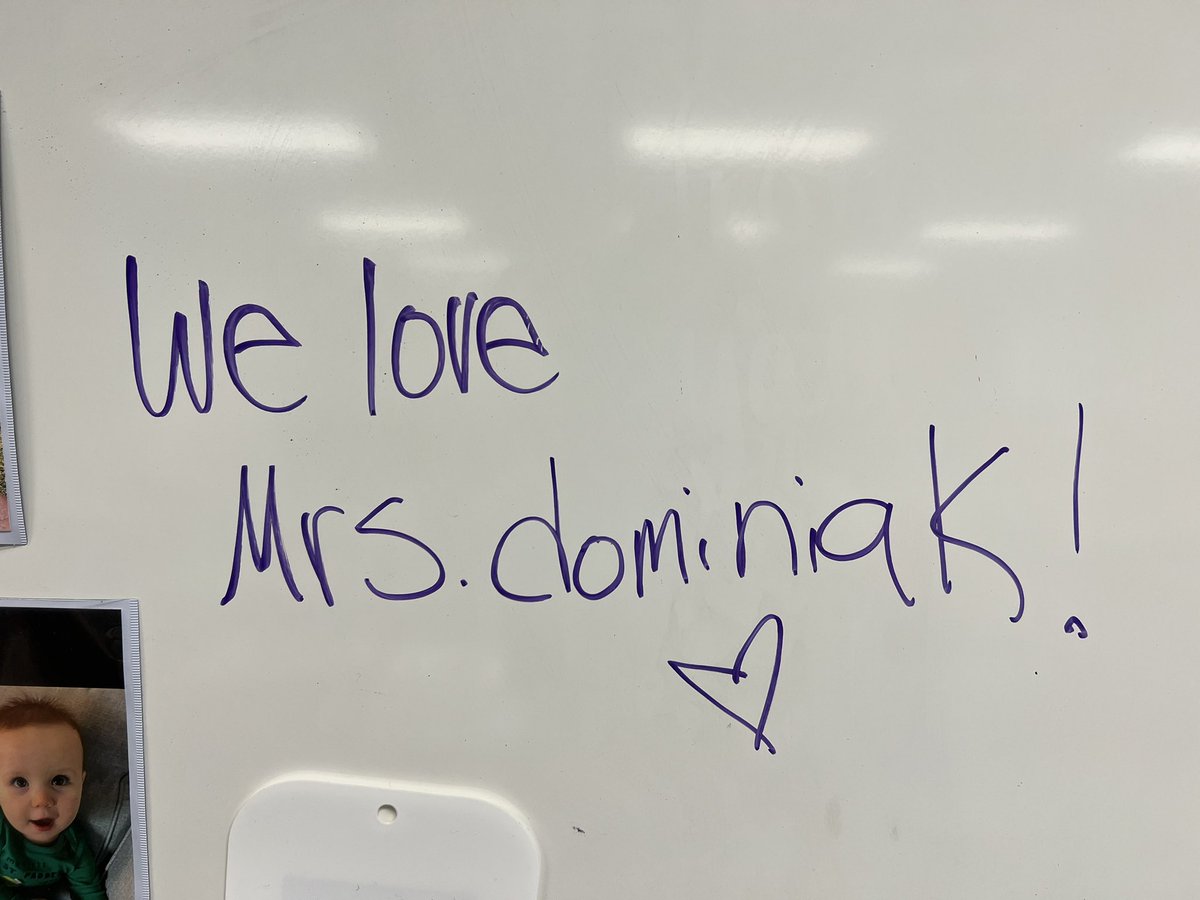 We love
Mrs. dominiak!